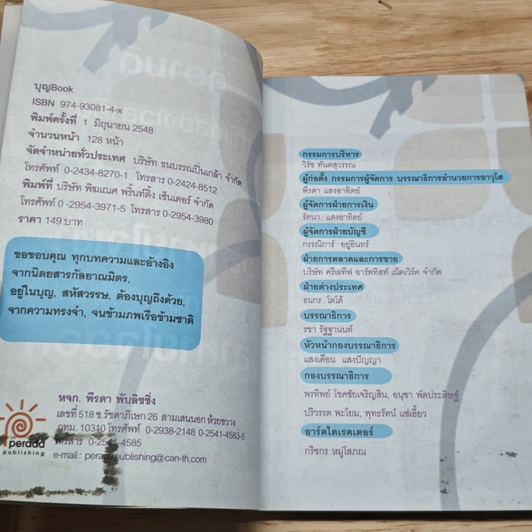 บุญBook
ISBN 974-93081-4-x
พิมพ์ครั้งที่ 1 มิถุนายน 2548
จำนวนหน้า 128 หน้า
จัดจำหน่ายทั่วประเทศ บริษัท ธนบรรณปิ่นเกล้า จำกัด
โทรศัพท์ 0-2434-8270-1 โทรสาร 0-2424-8512
พิมพ์ที่ บริษัท พิมเณศ พริ้นท์ติ้ง เซ็นเตอร์ จำกัด
โทรศัพท์ 0-2954-3971-5 โทรสาร 0-2954-3980
ราคา 149 บาท
ขอขอบคุณ ทุกบทความและอ้างอิง
จากนิตยสารกัลยาณมิตร,
อยู่ในบุญ, สหัสวรรษ, ต้องบุญถึงด้วย,
จากความทรงจำ, จนข้ามภพเรือข้ามชาติ
หจก. พีรดา พับลิชชิ่ง
เลขที่ 518 ซ.รัชดาภิเษก 26 สามเสนนอก ห้วยขวาง
กทม. 10310 โทรศัพท์ 0-2938-2148 0-2541-4583-5
โทรสาร 0-2541-4585
e-mail : publishing@can-th.com
perada
publishing
กรรมการบริหาร
วิรัช ทันตสุวรรณ
ผู้ก่อตั้ง กรรมการผู้จัดการ บรรณาธิการอำนวยการอาวุโส
พีรดา แสงอาทิตย์
ผู้จัดการฝ่ายการเงิน
รัตนา แสงอาทิตย์
ผู้จัดการฝ่ายบัญชี
กรรณิการ์ อยู่อินทร์
ฝ่ายการตลาดและการขาย
บริษัท ครีเอทีฟ อาร์ตทิสท์ เน็ตเวิร์ค จำกัด
ฝ่ายต่างประเทศ
ธนกร โตโต้
บรรณาธิการ
รชา รัฐฐานนท์
หัวหน้ากองบรรณาธิการ
แสงเดือน แสงปัญญา
กองบรรณาธิการ
พรทิพย์ โชคชัยเจริญสิน, อนุชา พัดประดิษฐ์,
ปริวรรต พะโยม, พุทธรัตน์ แซ่เอี้ยว
อาร์ตไดเรคเตอร์
กริชกร หมู่โสภณ